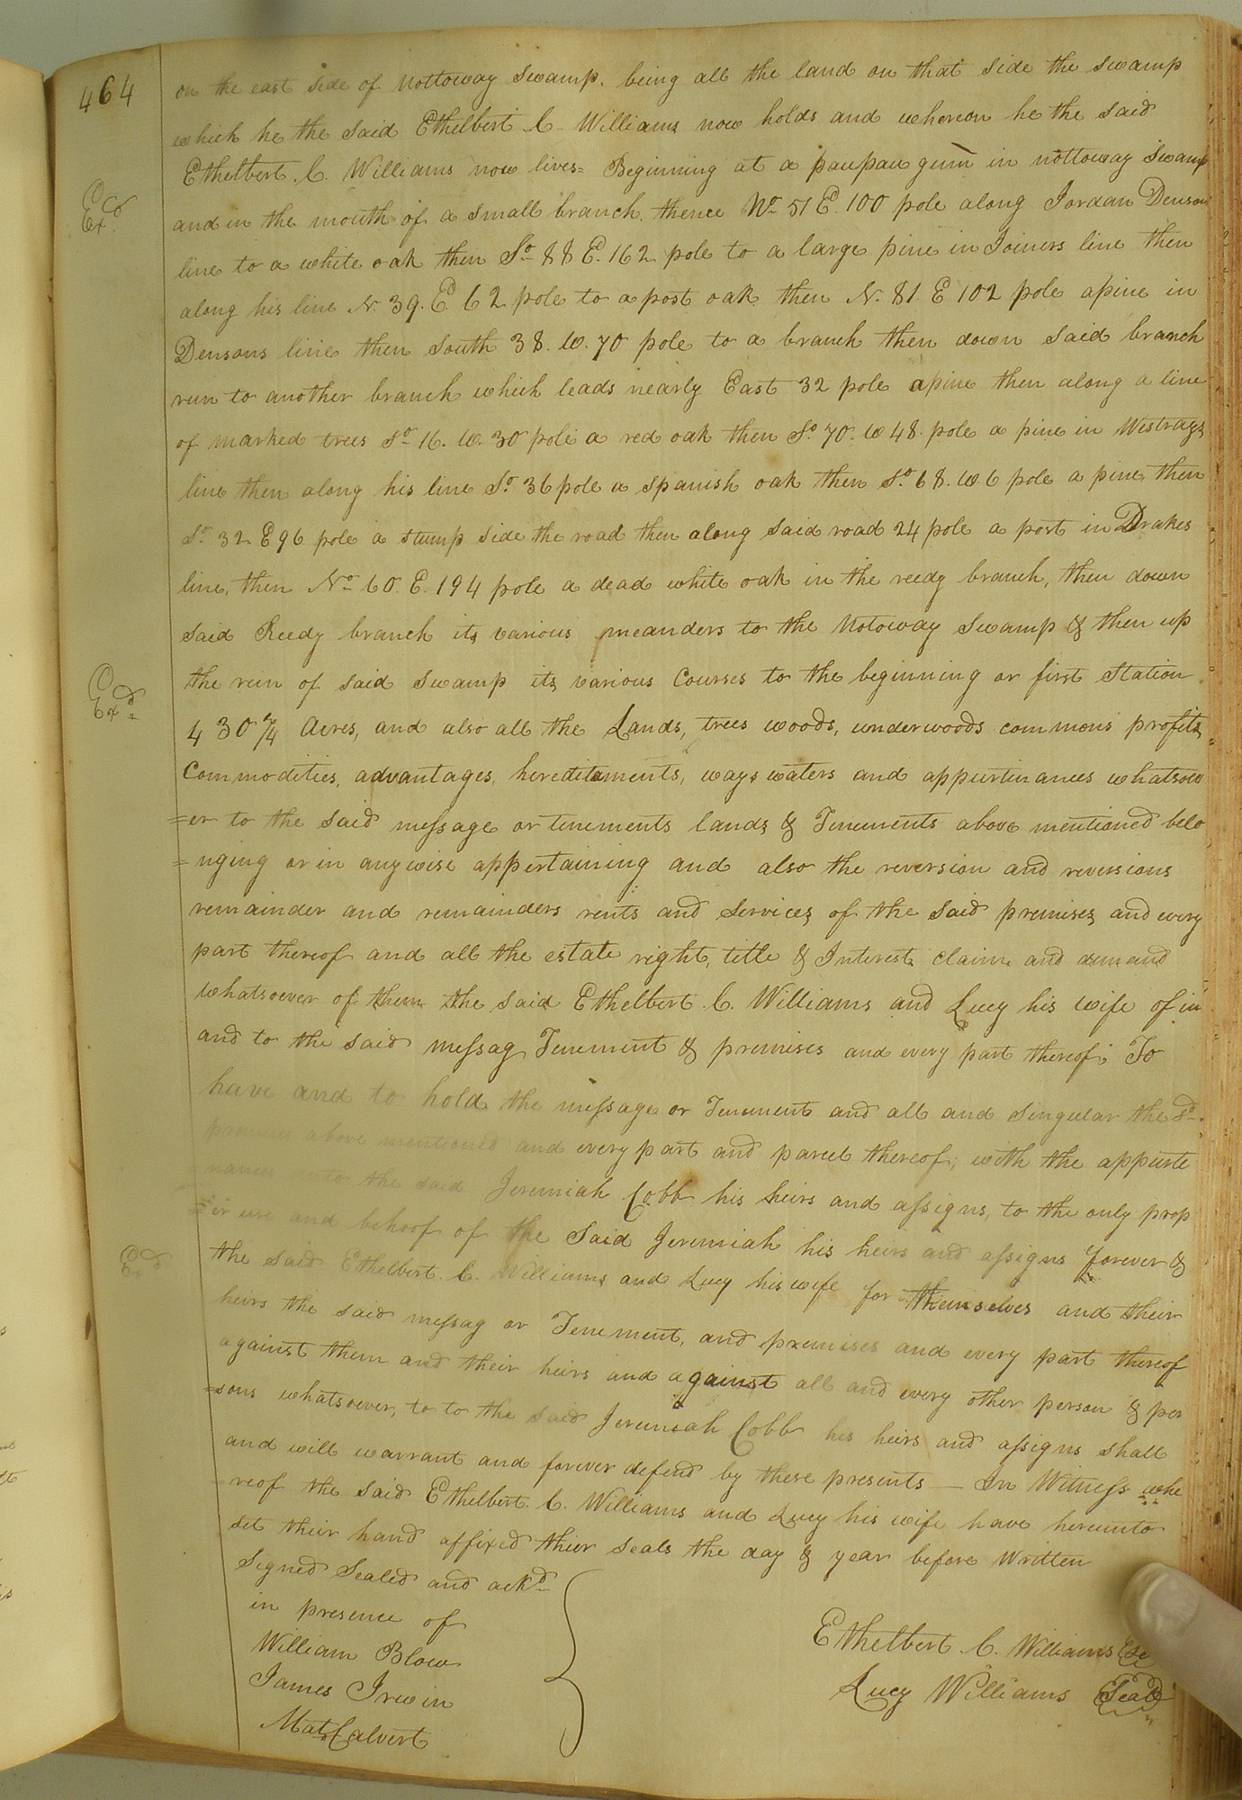 464
on the east side of Nottoway Swamp. being all the land on that side the swamp
which he the said Ethelbert C. Williams now holds and whereon he the said
Ethelbert. C. Williams now lives= Beginning at a paupau gum in nottoway Swamp
Ex.d
and in the mouth of a small branch, thence No 51 E. 100 pole along Jordan Denson
line to a white oak then So 88 E. 162 pole to a large pine in Joiners line then
along his line N. 39. E 62 pole to a post oak then N. 81. E 102 pole a pine in
Densons line then South 38. W. 70 pole to a branch then down said branch
run to another branch which leads nearly East 32 pole a pine then along a line
of marked trees So 16. W. 30 pole a red oak then So 70. W 48. pole a pine in Westrays
line then along his line So 36 pole a spanish oak then So 68. W 6 pole a pine then
So 32 E 96 pole a stump side the road then along said road 24 pole a post in Drakes
line, then No 60. E. 194 pole a dead white oak in the reedy branch, then down
said Reedy branch its various meanders to the Notoway Swamp & then up
the run of said swamp its various Courses to the beginning or first Station
Exd
430 3/4 Acres, and also all the Lands, trees woods, underwoods commons profits
Commodities, advantages, hereditaments, ways waters and appurtinances whatsoe
=er to the said message or tenements lands & Tenements above mentioned belo
=nging or in anywise appertaining and also the reversion and reversions
remainder and remainders rents and services of the said premises and every
part thereof and all the estate right, title & Interest claim and demand
whatsoever of them the said Ethelbert C. Williams and Lucy his wife of in
and to the said messag Tenement & premises and every part thereof; To
have and to hold the message or Tenement and all and singular the sd
premises above mentioned and every part and parcel thereof; with the appurte
nances to the said Jeremiah Cobb his heirs and assigns, to the only prop
=er use and behoof of the said Jeremiah his heirs and assigns forever &
Exd
the said Ethelbert. C. Williams and Lucy his wife for themselves and their
heirs the said messag or Tenement, and premises and every part thereof
against them and their heirs and against all and every other person & per
=sons whatsoever, to to the said Jeremiah Cobb his heirs and assigns shall
and will warrant and forever defend by these presents — In Witness whe
reof the said Ethelbert. C. Williams and Lucy his wife have hereunto
set their hand affixed thier seals the day & year before written
Signed Sealed and ackd
in presence of
William Blow
James Irwin
Mat. Calvert
Ethelbert. C. Williams Se
Lucy Williams Seal